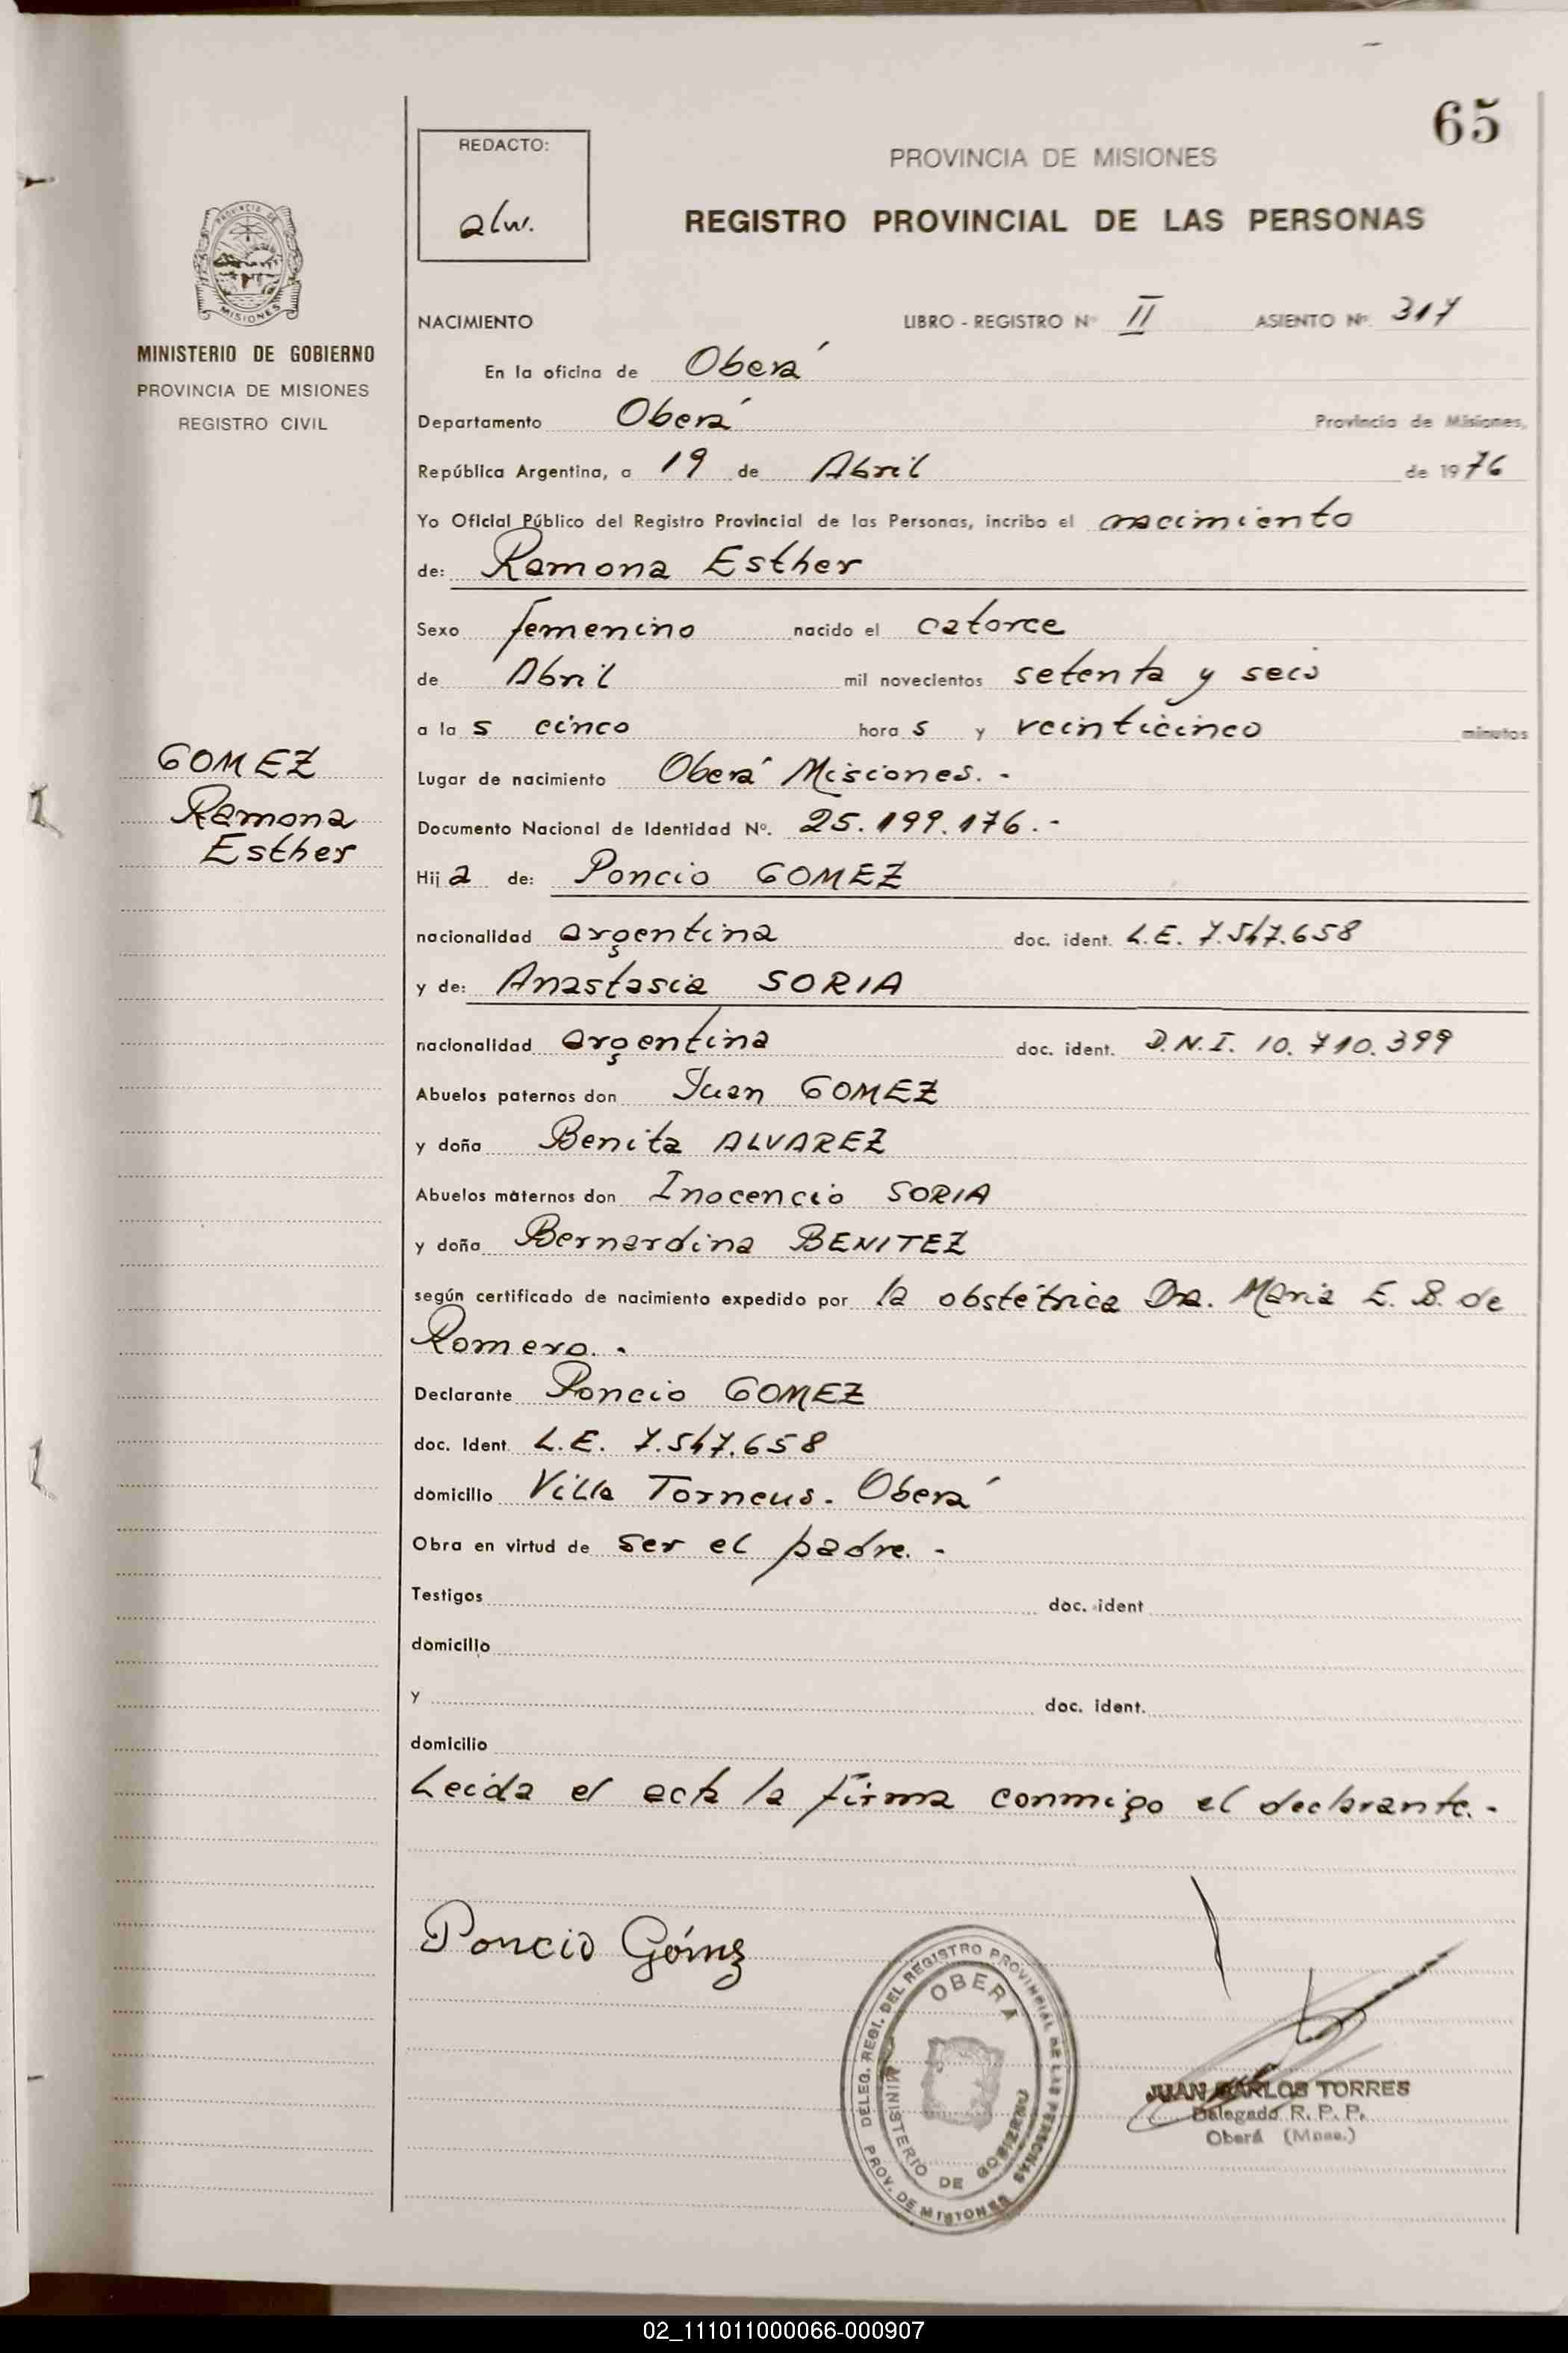 65
REDACTO:
alw.
PROVINCIA DE MISIONES
REGISTRO PROVINCIAL DE LAS PERSONAS
PROVINCIA DE
MISIONES
MINISTERIO DE GOBIERNO
PROVINCIA DE MISIONES
REGISTRO CIVIL
GOMEZ
Ramona
Esther
NACIMIENTO LIBRO - REGISTRO Nº II ASIENTO Nº 317
En la oficina de Oberá
Departamento Oberá Provincia de Misiones,
República Argentina, a 19 de Abril de 1976
Yo Oficial Público del Registro Provincial de las Personas, incribo el nacimiento
de: Ramona Esther
Sexo femenino nacido el catorce
de Abril mil novecientos setenta y seis
a la s cinco hora s y veinticinco minutos
Lugar de nacimiento Oberá Misiones. -
Documento Nacional de Identidad Nº. 25.199.176. -
Hij a de: Poncio GOMEZ
nacionalidad argentina doc. ident. L.E. 7.547.658
y de: Anastasia SORIA
nacionalidad argentina doc. ident. D.N.I. 10.710.399
Abuelos paternos don Juan GOMEZ
y doña Benita ALVAREZ
Abuelos maternos don Inocencio SORIA
y doña Bernardina BENITEZ
según certificado de nacimiento expedido por la obstétrica Dra. Maria E. B. de
Romero. -
Declarante Poncio GOMEZ
doc. Ident. L.E. 7.547.658
domicilio Villa Torneus. Oberá
Obra en virtud de ser el padre. -
Testigos doc. ident
domicilio
y doc. ident.
domicilio
Leida el acta la firma conmigo el declarante. -
Poncio Gómez
DELEG. REGI. DEL REGISTRO PROVINCIAL DE LAS PERSONAS
OBERÁ
MINISTERIO DE GOBIERNO
PROV. DE MISIONES
JUAN CARLOS TORRES
Delegado R. P. P.
Oberá (Mnes.)
02_111011000066-000907